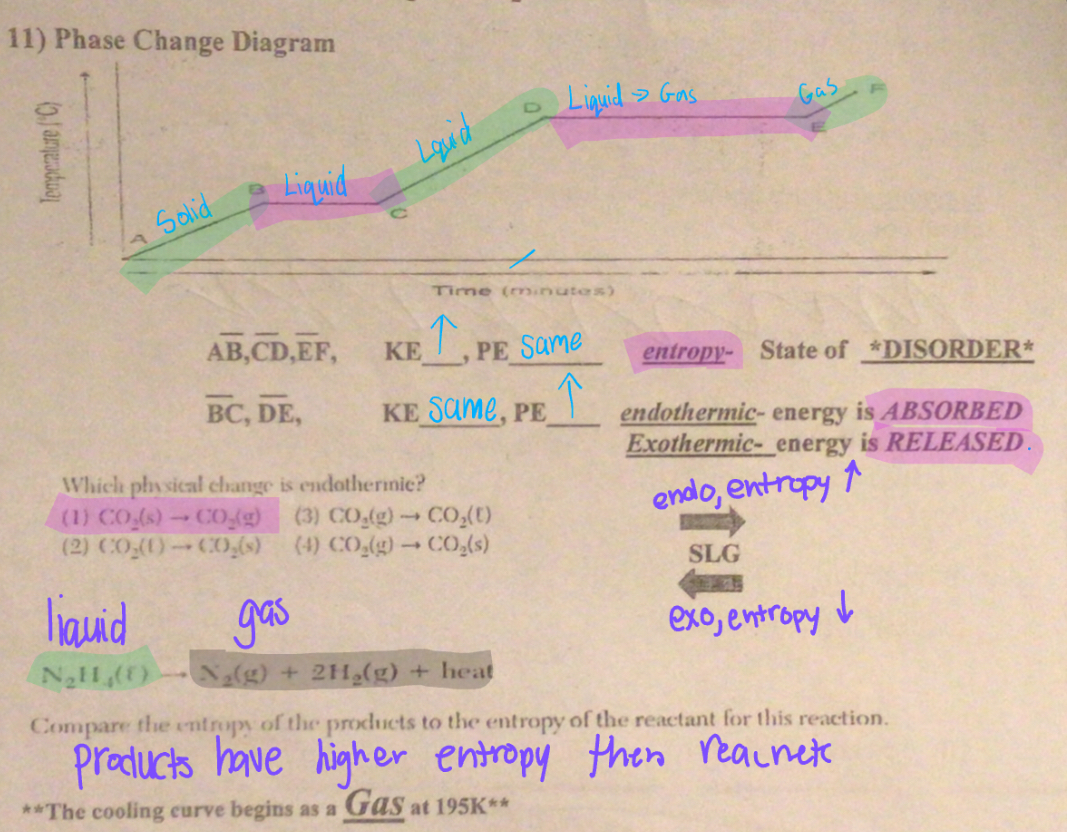 11) Phase Change Diagram
Temperature (°C)
A
Solid
B
Liquid
C
Liquid
D
Liquid → Gas
E
Gas
F
Time (minutes)
AB,CD,EF, KE ↑, PE same entropy- State of *DISORDER*
BC, DE, KE same, PE ↑ endothermic- energy is ABSORBED
Exothermic- energy is RELEASED.
Which physical change is endothermic?
(1) CO₂(s) → CO₂(g) (3) CO₂(g) → CO₂(ℓ)
(2) CO₂(ℓ) → CO₂(s) (4) CO₂(g) → CO₂(s)
endo, entropy ↑
SLG
exo, entropy ↓
liquid gas
N₂H₄(ℓ) → N₂(g) + 2H₂(g) + heat
Compare the entropy of the products to the entropy of the reactant for this reaction.
Products have higher entropy then
**The cooling curve begins as a Gas at 195K**